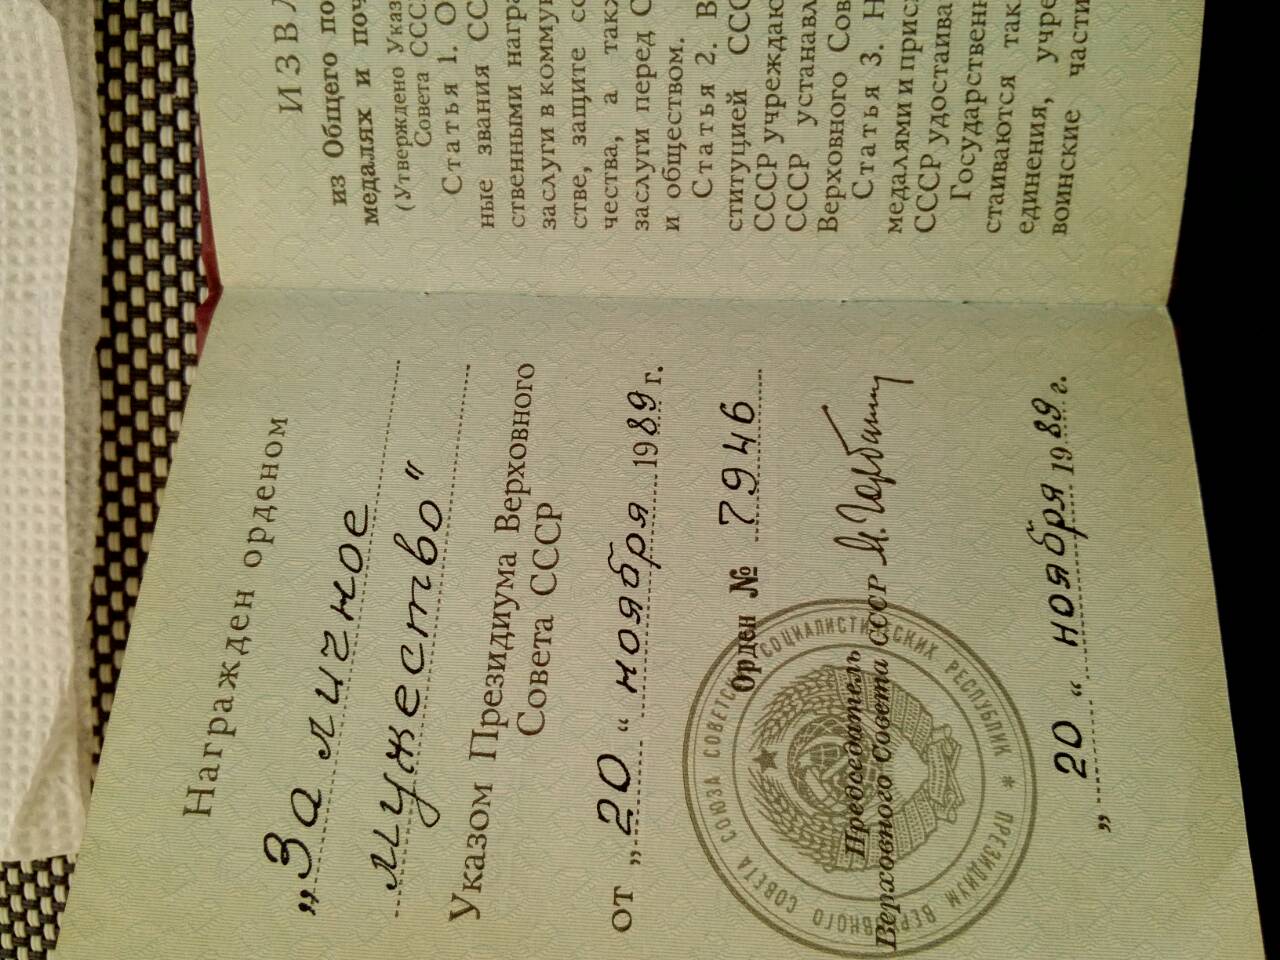 Награжден орденом
„За личное
мужество“
Указом Президиума Верховного
Совета СССР
от „20“ ноября 1989 г.
Орден № 7946
Председатель
Верховного Совета СССР М. Горбачев
„20“ ноября 1989 г.
ПРЕЗИДИУМ ВЕРХОВНОГО СОВЕТА СОЮЗА СОВЕТСКИХ СОЦИАЛИСТИЧЕСКИХ РЕСПУБЛИК *
ИЗВЛ
из Общего по
медалях и поч
(Утверждено Указ
Совета СССР
Статья 1. О
ные звания СС
ственными нагр
заслуги в коммун
стве, защите со
чества, а такж
заслуги перед С
и обществом.
Статья 2. В
ституцией ССС
СССР учреждаю
СССР устанавл
Верховного Сов
Статья 3. Н
медалями и прис
СССР удостаива
Государственн
стаиваются так
единения, учре
воинские части